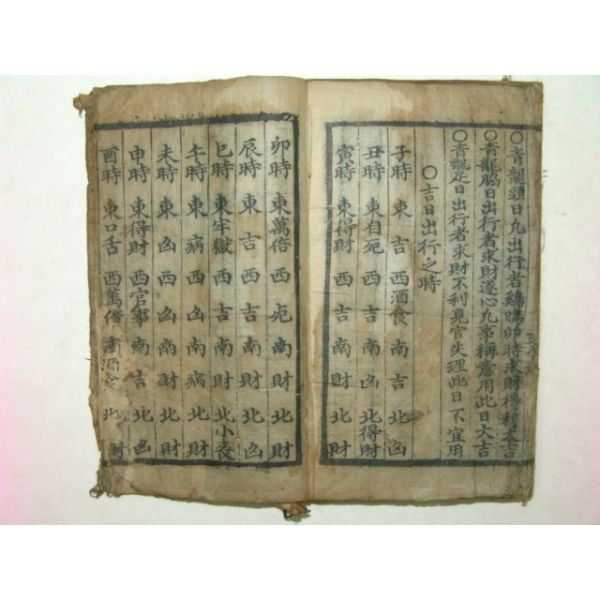 ○青龍頭日凡出行者鷄鳴時求財得利大吉
○青龍脇日出行者求財遂心凡事稱意用此日大吉
○青龍足日出行者求財不利見官失理此日不宜用
○吉日出行之時
子時 東吉 西酒食 南吉 北凶
丑時 東自死 西凶 南凶 北得財
寅時 東得財 西吉 南吉 北財
卯時 東萬倍 西死 南財 北財
辰時 東吉 西吉 南財 北凶
巳時 東牢獄 西吉 南財 北小喪
午時 東病 西凶 南病 北財
未時 東凶 西凶 南財 北財
申時 東得財 西官事 南吉 北凶
酉時 東口舌 西萬倍 南酒食 北財